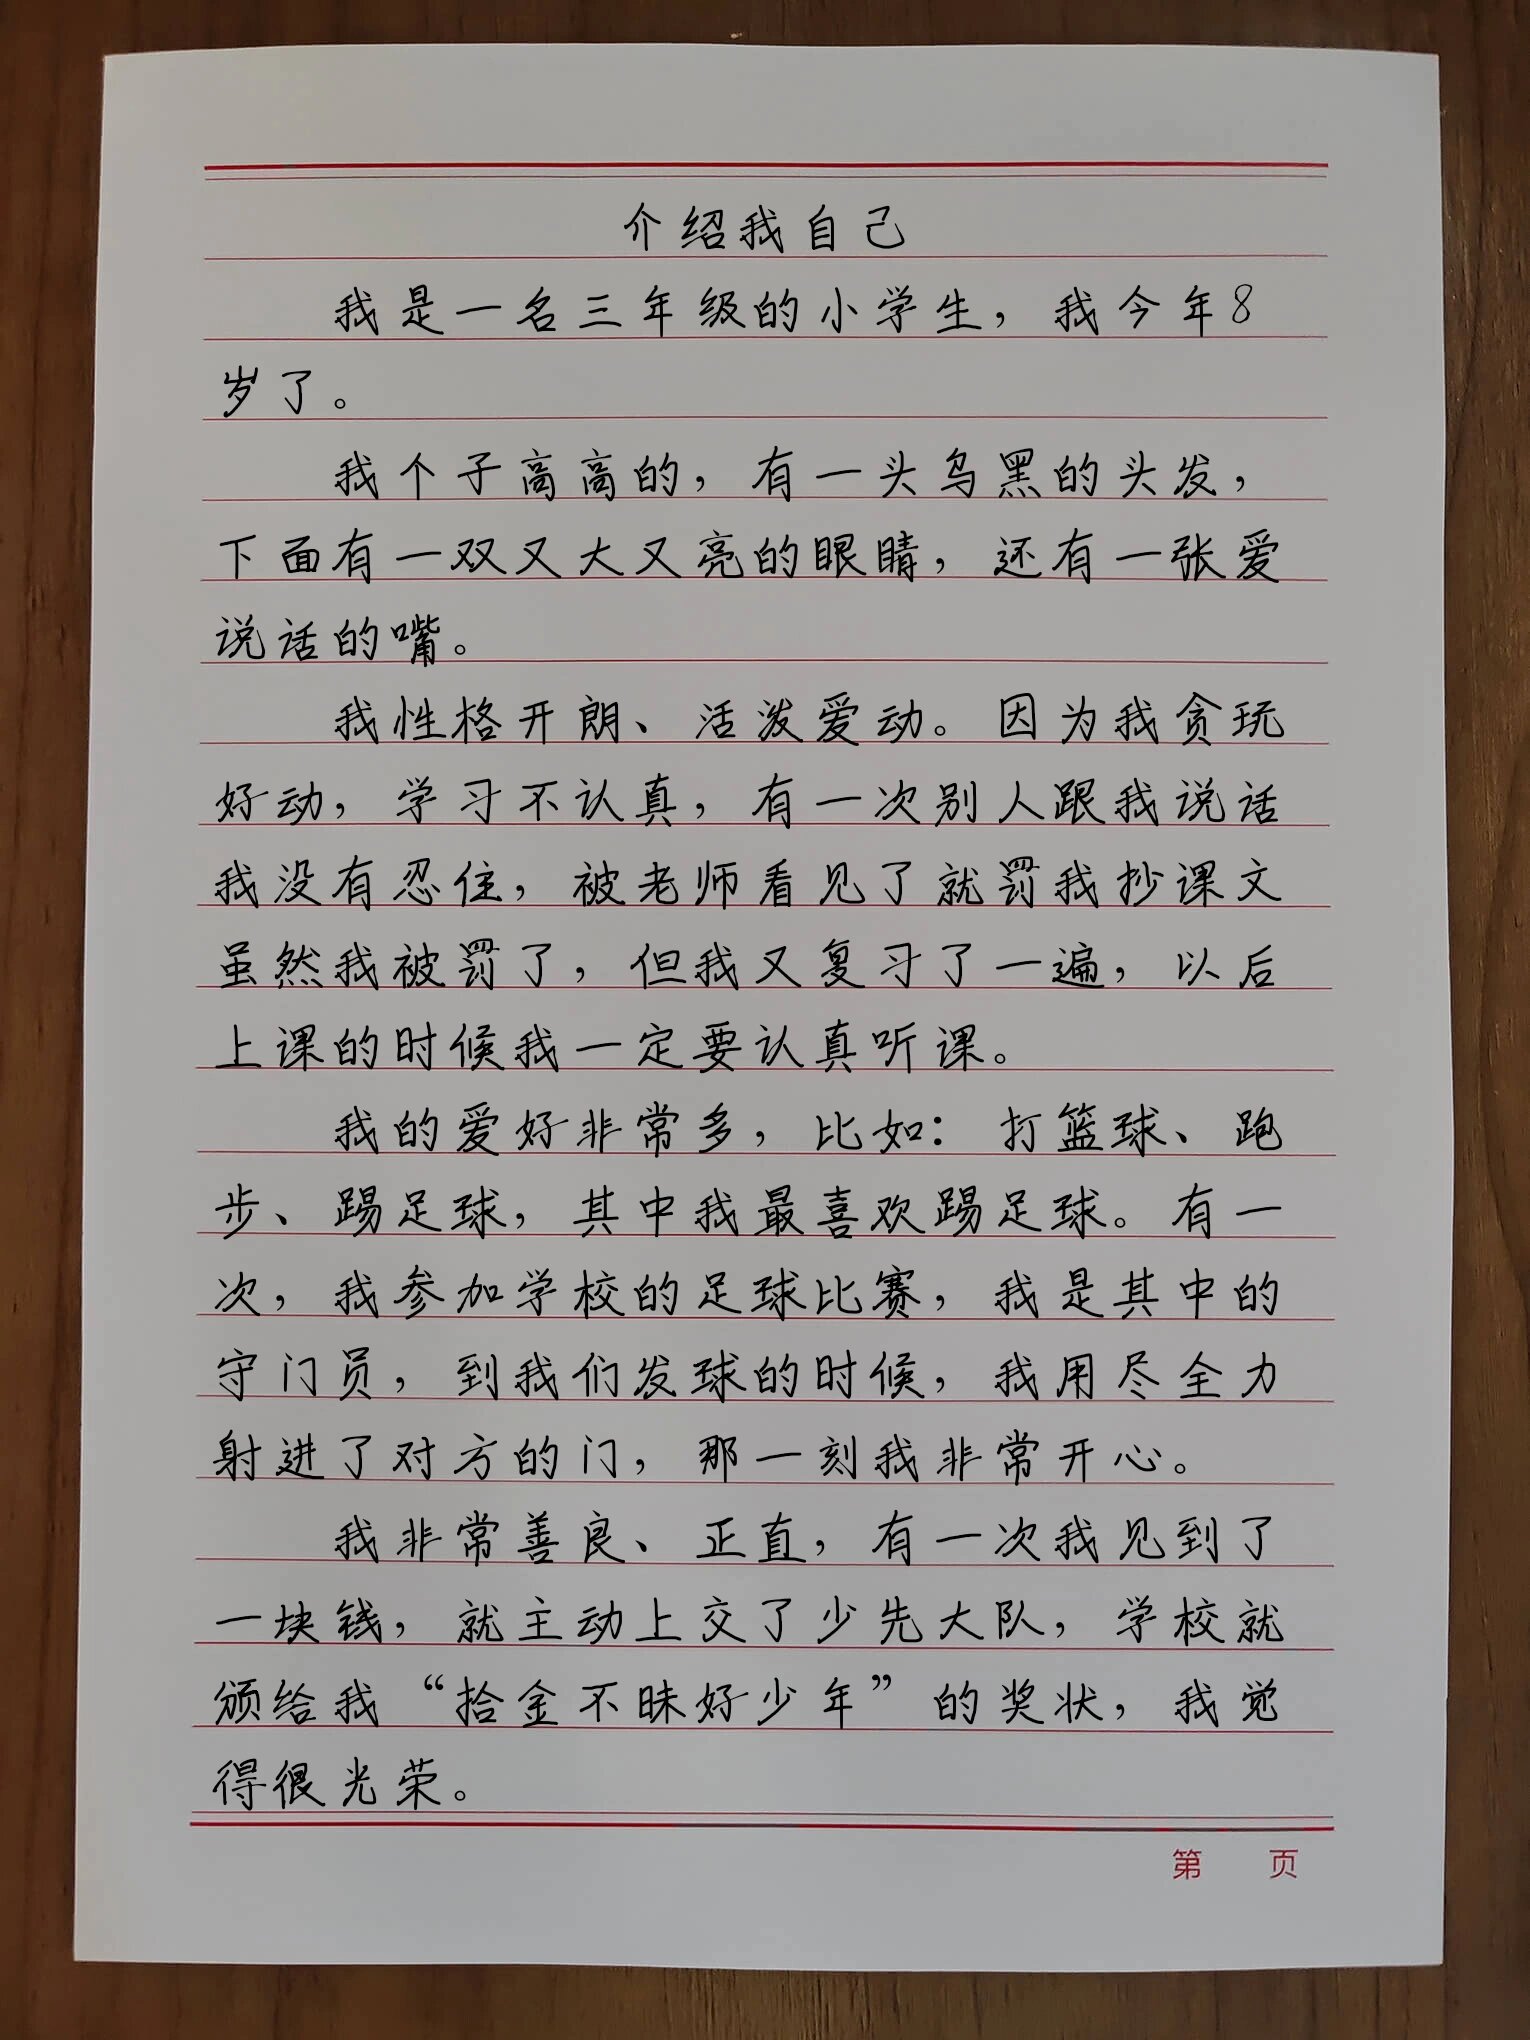 介绍我自己
我是一名三年级的小学生，我今年8
岁了。
我个子高高的，有一头乌黑的头发，
下面有一双又大又亮的眼睛，还有一张爱
说话的嘴。
我性格开朗、活泼爱动。因为我贪玩
好动，学习不认真，有一次别人跟我说话
我没有忍住，被老师看见了就罚我抄课文
虽然我被罚了，但我又复习了一遍，以后
上课的时候我一定要认真听课。
我的爱好非常多，比如：打篮球、跑
步、踢足球，其中我最喜欢踢足球。有一
次，我参加学校的足球比赛，我是其中的
守门员，到我们发球的时候，我用尽全力
射进了对方的门，那一刻我非常开心。
我非常善良、正直，有一次我见到了
一块钱，就主动上交了少先大队，学校就
颁给我“拾金不昧好少年”的奖状，我觉
得很光荣。
第 页